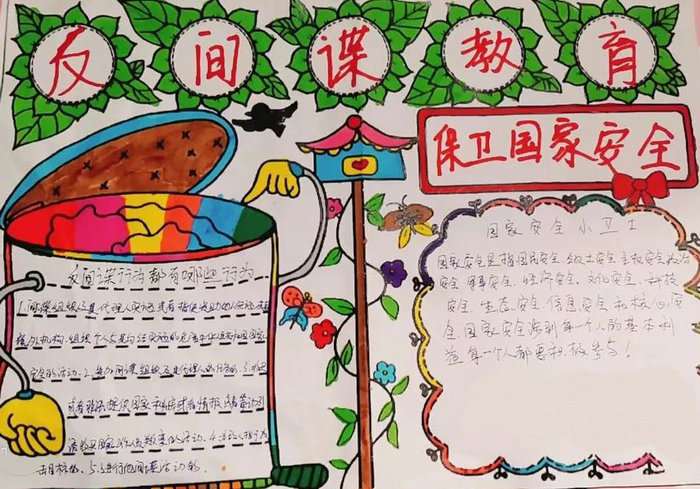 反间谍教育
保卫国家安全
国家安全小卫士
国家安全是指国民安全领土安全主权安全政治
安全军事安全、经济安全、文化安全、科技
安全、生态安全信息安全和核心安
全国家安全涉到每一个人的基本利
益每一个人都要积极参与！
反间谍行为都有哪些行为
1.间谍组织人及其代理人实施或者指使资助他人实施
机构、组织、个人与其勾结实施的危害中华人民共和国国家
安全的活动.2.参加间谍组织及其代理人的任务的.3.
或者非法提供国家秘密或者情报
活动.4.为敌人指示
击目标的.5.进行其他间谍活动的.